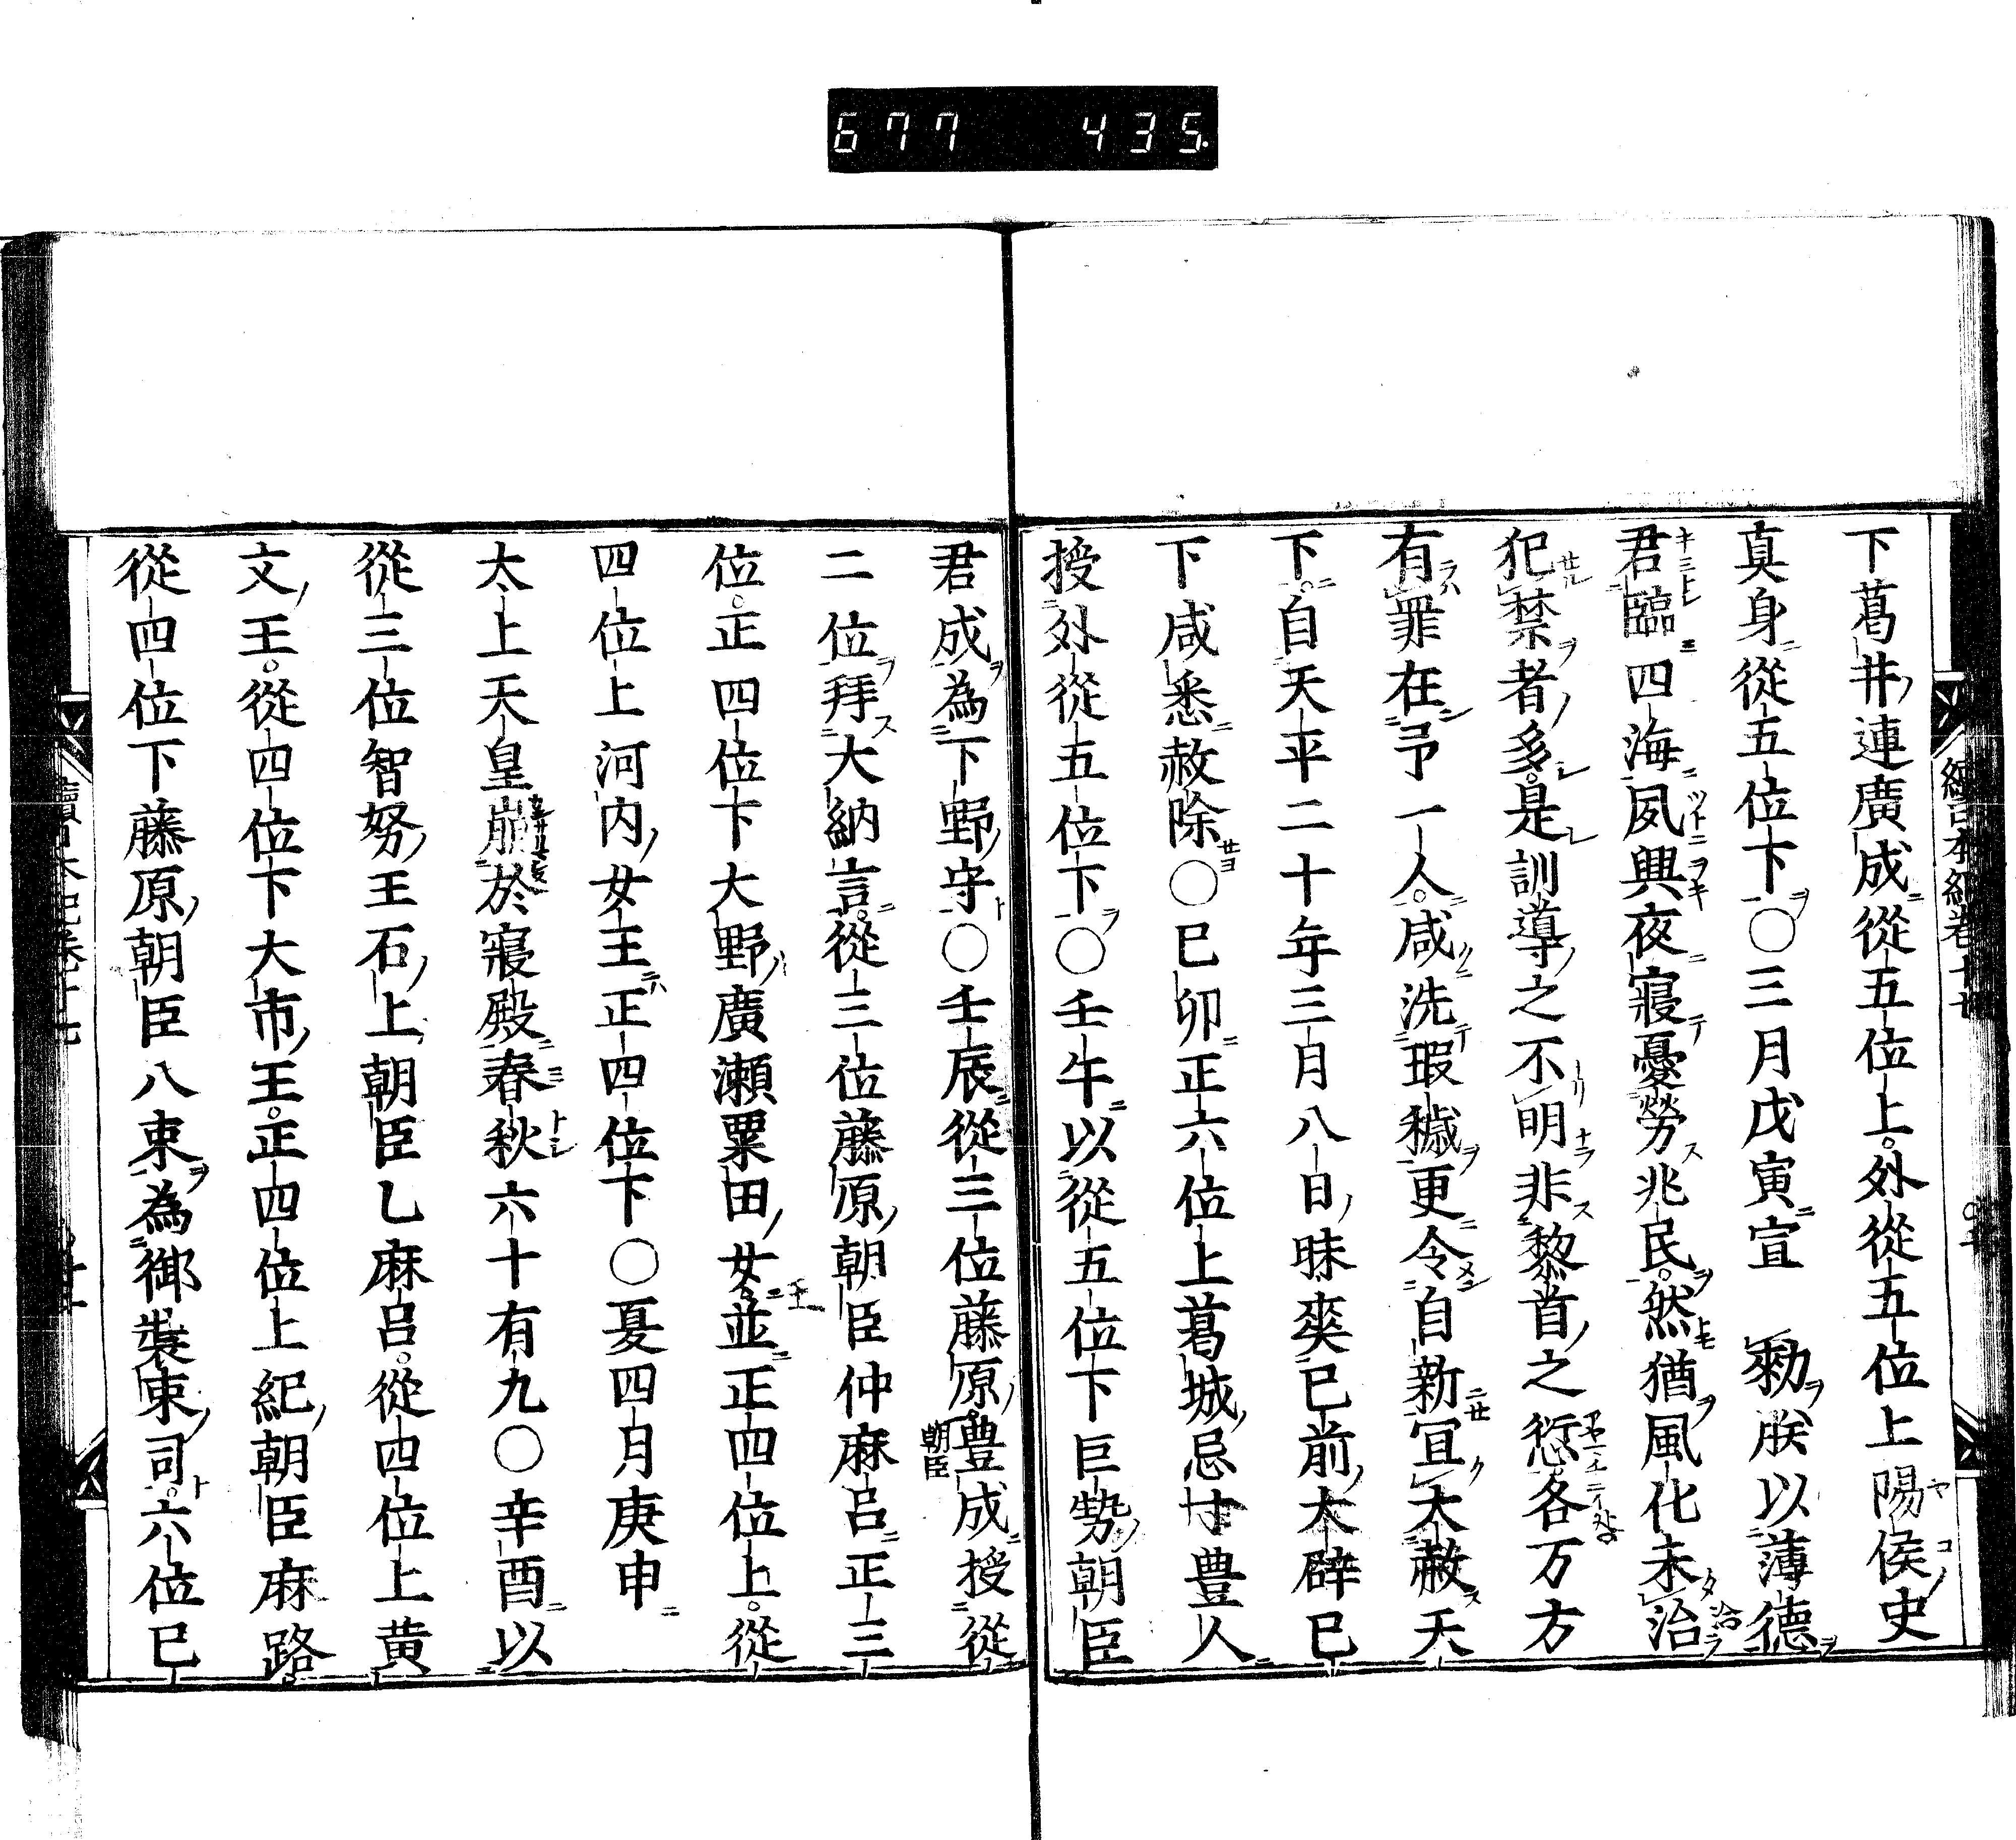 677 435.
下葛井連廣成從五位上。外從五位上陽侯史
真身從五位下○三月戊寅宣 勅朕以薄德
君臨四海夙興夜寢憂勞兆民。然猶風化未治
犯禁者多。是訓導之不明非黎首之愆。各万方
有罪在予一人。咸洗瑕穢更令自新宜大赦天
下。自天平二十年三月八日昧爽已前大辟已
下咸悉赦除○己卯正六位上葛城忌寸豊人
授外從五位下○壬午以從五位下巨勢朝臣
君成為下野守○壬辰從三位藤原豊成授從
朝臣
二位拜大納言。從三位藤原朝臣仲麻呂正三
位。正四位下大野廣瀬粟田女並正四位上。從
王
四位上河内女王正四位下○夏四月庚申
太上天皇崩於寢殿春秋六十有九○辛酉以
從三位智努王石上朝臣乙麻呂。從四位上黄
文王。從四位下大市王。正四位上紀朝臣麻路。
從四位下藤原朝臣八束為御裝束司。六位已